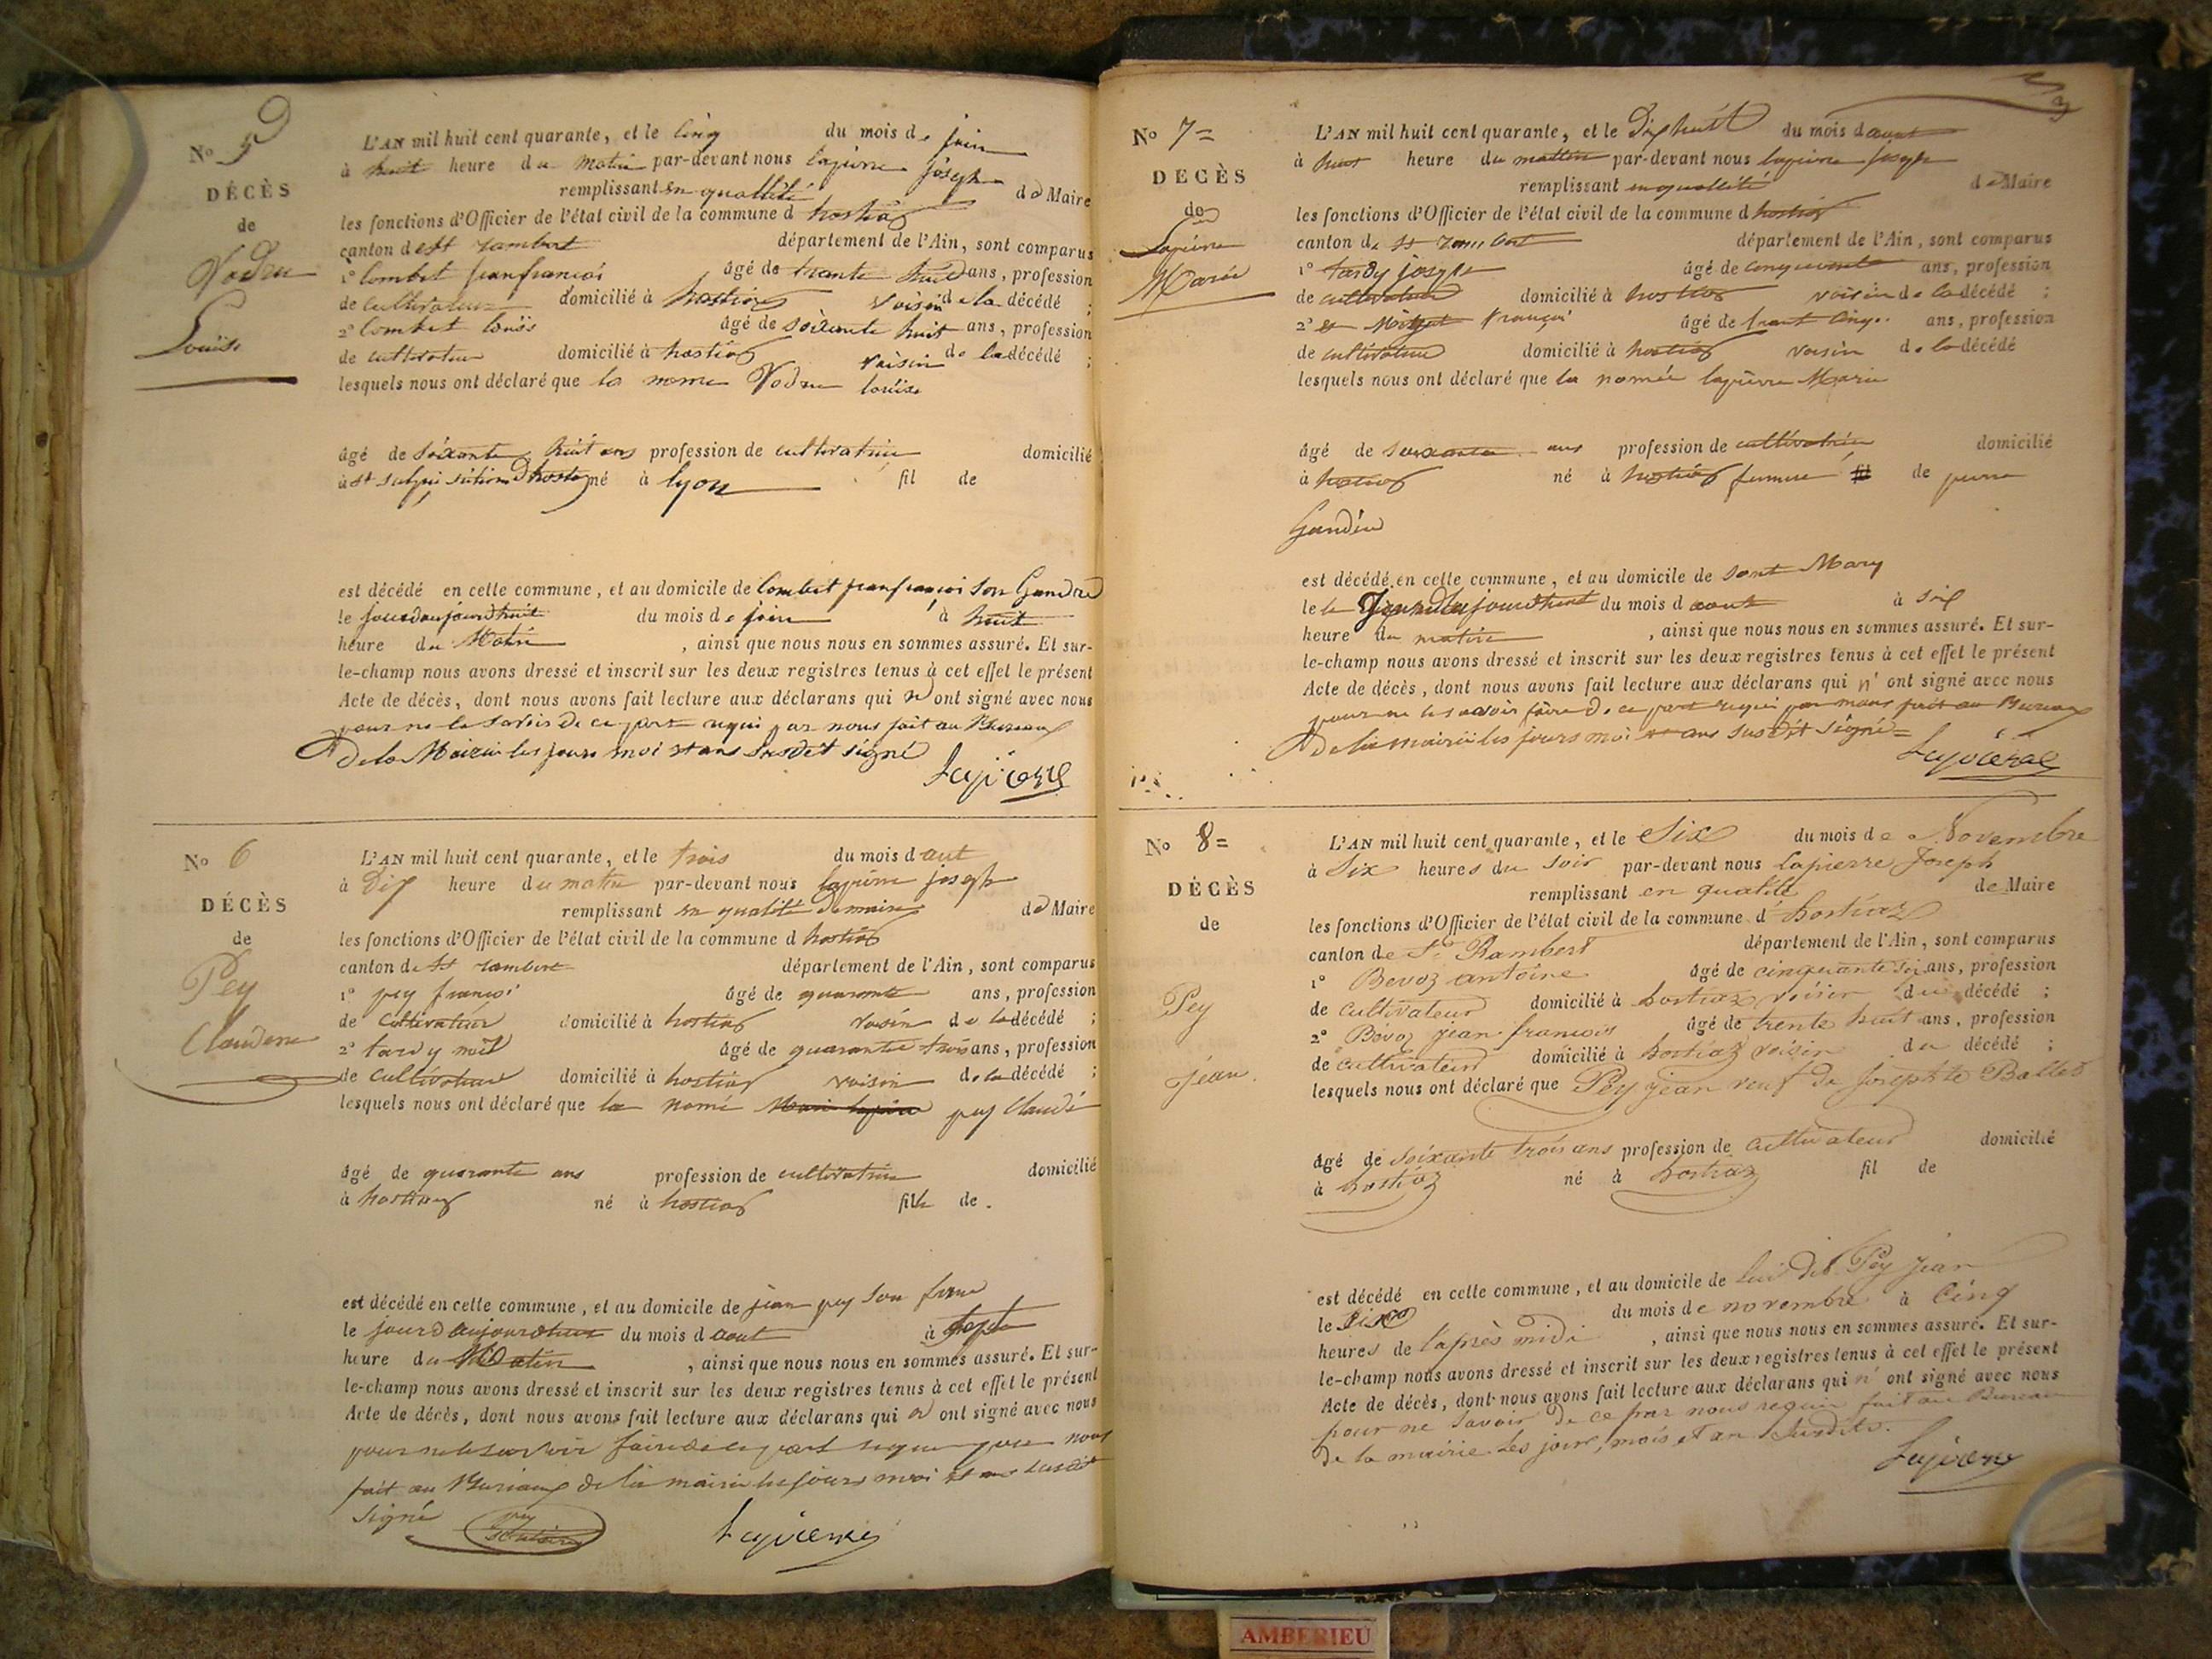 No 5
DÉCÈS
de
Vodru
Louise
L'AN mil huit cent quarante, et le cinq du mois de juin
à huit heure du matin par-devant nous lapierre joseph
remplissant en quallité de Maire
les fonctions d'Officier de l'état civil de la commune d hostias
canton de st rambert département de l'Ain, sont comparus
1° Combet jeanfrancois âgé de trante huit ans, profession
de cultivateur domicilié à hostias voisin de la décédé ;
2° Combet louis âgé de soixante huit ans, profession
de cultivateur domicilié à hostias voisin de la décédé ;
lesquels nous ont déclaré que la nomé Vodru louise
âgé de soixante huit ans profession de cultivatrice domicilié
à st né à lyon fil de
est décédé en cette commune, et au domicile de Combet jeanfrançois son Gendre
le jourdaujourdhuit du mois de juin à huit
heure du Matin , ainsi que nous nous en sommes assuré. Et sur-
le-champ nous avons dressé et inscrit sur les deux registres tenus à cet effet le présent
Acte de décès, dont nous avons fait lecture aux déclarans qui n ont signé avec nous
pour ne le savoir de ce part requi par nous fait au Bureaux
De la Mairie les jours moi et ans susdit signé
Lapierre
No 6
DÉCÈS
de
Pey
Claudine
L'AN mil huit cent quarante, et le trois du mois d aut
à Dix heure du matin par-devant nous lapierre joseph
remplissant en qualité de maire de Maire
les fonctions d'Officier de l'état civil de la commune d hostias
canton de st rambert département de l'Ain, sont comparus
1° pey françoi âgé de quarante ans, profession
de cultivateur domicilié à hostias voisin de la décédé ;
2° tardy âgé de quarante trois ans, profession
de cultivateur domicilié à hostias voisin de la décédé ;
lesquels nous ont déclaré que la nomé pey Claudi
âgé de quarante ans profession de cultivatrice domicilié
à hostias né à hostias fille de
est décédé en cette commune, et au domicile de jean pey son frere
le jourdaujourdhui du mois d aout à
heure du Matin , ainsi que nous nous en sommes assuré. Et sur-
le-champ nous avons dressé et inscrit sur les deux registres tenus à cet effet le présent
Acte de décès, dont nous avons fait lecture aux déclarans qui n ont signé avec nous
pour ne le savoir faire de ce part requi par nous
fait au Buriaux de la mairie les jours moi et ans susdit
signé pey Lapierre
No 7=
DÉCÈS
de
Lapierre
Marie
L'AN mil huit cent quarante, et le Dixhuit du mois d aout
à huit heure du mattin par-devant nous lapierre joseph
remplissant en quallité de Maire
les fonctions d'Officier de l'état civil de la commune d hostias
canton de st rambert département de l'Ain, sont comparus
1° tardy joseph âgé de cinquante ans, profession
de cultivateur domicilié à hostias voisin de la décédé ;
2° françoi âgé de trant cinq ans, profession
de cultivateur domicilié à hostias voisin de la décédé
lesquels nous ont déclaré que la nomée lapierre Marie
âgé de soixante ans profession de cultivatrice domicilié
à hostias né à hostias femme de pierre
Gandin
est décédé en cette commune, et au domicile de sont Mary
le jourdaujourdhuit du mois d aout à six
heure du matin , ainsi que nous nous en sommes assuré. Et sur-
le-champ nous avons dressé et inscrit sur les deux registres tenus à cet effet le présent
Acte de décès, dont nous avons fait lecture aux déclarans qui n' ont signé avec nous
pour ne le savoir faire de ce part requi par nous fait au Bureaux
De la mairie les jours moi et ans susdit signé=
Lapierre
No 8=
DÉCÈS
de
Pey
jean.
L'AN mil huit cent quarante, et le Six du mois de Novembre
à Six heures du soir par-devant nous lapierre Joseph
remplissant en qualité de Maire
les fonctions d'Officier de l'état civil de la commune d'hostiaz
canton de St Rambert département de l'Ain, sont comparus
1° Bevoz antoine âgé de cinquante six ans, profession
de cultivateur domicilié à hostiaz voisin du décédé ;
2° Bevoz jean francois âgé de trente huit ans, profession
de cultivateur domicilié à hostiaz voisin du décédé ;
lesquels nous ont déclaré que Pey jean veuf de Josephte Ballet
âgé de soixante trois ans profession de cultivateur domicilié
à hostiaz né à hostiaz fil de
est décédé en cette commune, et au domicile de lui dit Pey jean
le Six du mois de novembre à cinq
heures de l'après midi , ainsi que nous nous en sommes assuré. Et sur-
le-champ nous avons dressé et inscrit sur les deux registres tenus à cet effet le présent
Acte de décès, dont nous avons fait lecture aux déclarans qui n' ont signé avec nous
pour ne savoir de ce par nous requis fait au Bureau
de la mairie les jour, mois et an susdits.
Lapierre
AMBERIEU